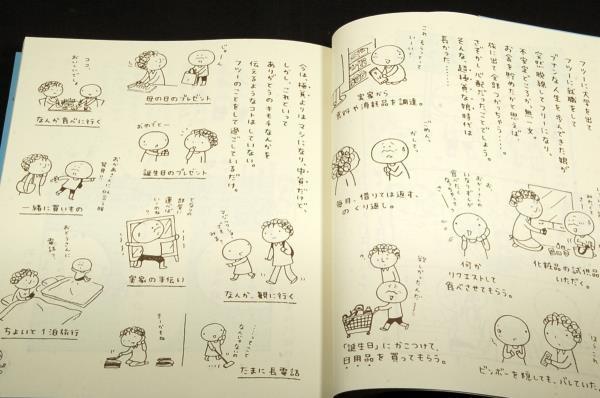 フツーに大学を出て
フツーに就職をして
ブナンな人生を歩んできた娘が
今だ脱線してフリーになり、
不安定どころか無一文。
お金を貯めたかと思えば
旅に出て全部つかっちゃう…。
さぞかし心配だったことでしょう。
そんな、超極貧な娘時代は
長かった………
これもらってていい?
実家から
食材や消耗品を調達。
ごめん。
かして。
毎月、借りては返す、
のくり返し。
おかあさんの
食べたいなぁ
何か
リクエストして
食べさせてもらう。
化粧品の試供品
いただく。
「誕生日」にかこつけて、
日用品を買ってもらう。
ビンボーを隠しても、バレていた。
今は、極貧よりはマシになり、中貧だけど、
しかし、これといって
ありがとうのキモチなんかを
伝えるようなコトはしていない。
フツーのことをして過ごしているだけ。
じゃーん
母の日のプレゼント
ココ、
おいしいでしょ
なんか食べに行く
おめでとー
誕生日のプレゼント
一緒に買いもの
となりの
部屋に
運べば
いいのね?
実家の手伝い
なんか、観に行く
おとうさんに
電話して
ちょいと1泊旅行
たまに長電話